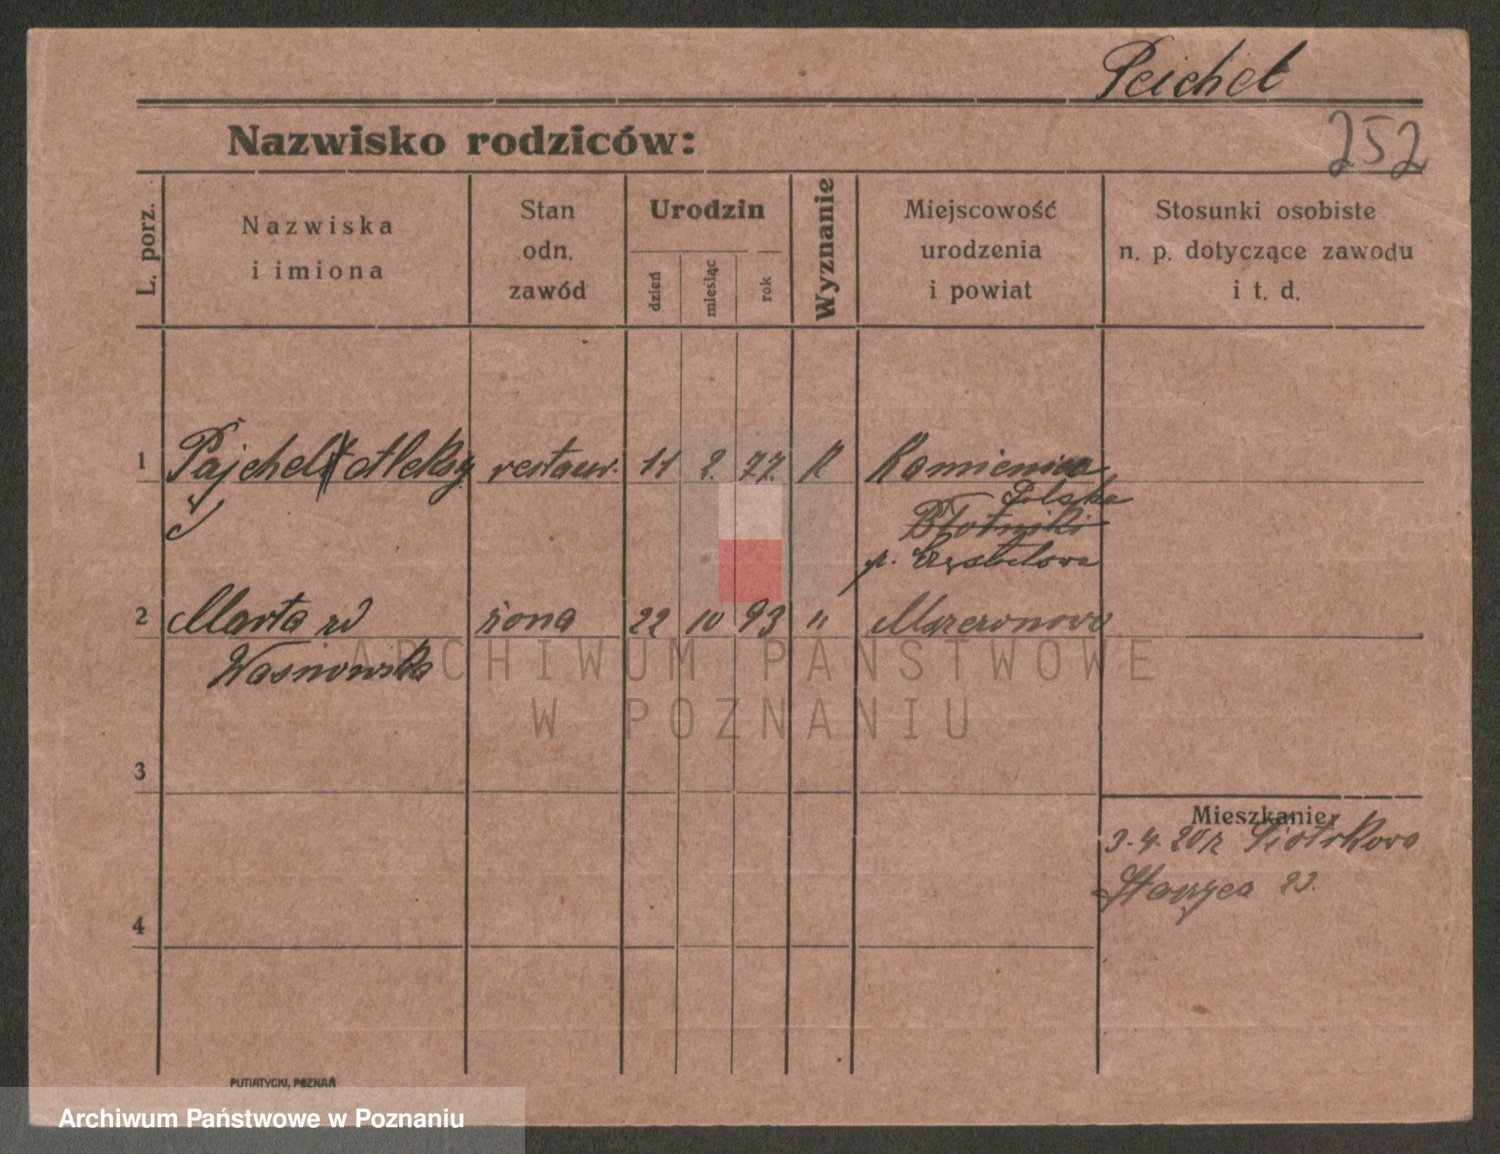 Peichel
Nazwisko rodziców:
252
L. porz.
Nazwiska
i imiona
Stan
odn.
zawód
Urodzin
dzień
miesiąc
rok
Wyznanie
Miejscowość
urodzenia
i powiat
Stosunki osobiste
n. p. dotyczące zawodu
i t. d.
1 Pajchel Aleksy restaur. 11 2. 77. K Kamienica
Polska
Błotniki
p. Częstochowa
2 Marta zd żona 22 10 93 "
Wasnowska
ARCHIWUM PAŃSTWOWE
W POZNANIU
3
Mieszkanie:
3.4.20 r
4
23.
PUTIATYCKI, POZNAŃ
Archiwum Państwowe w Poznaniu